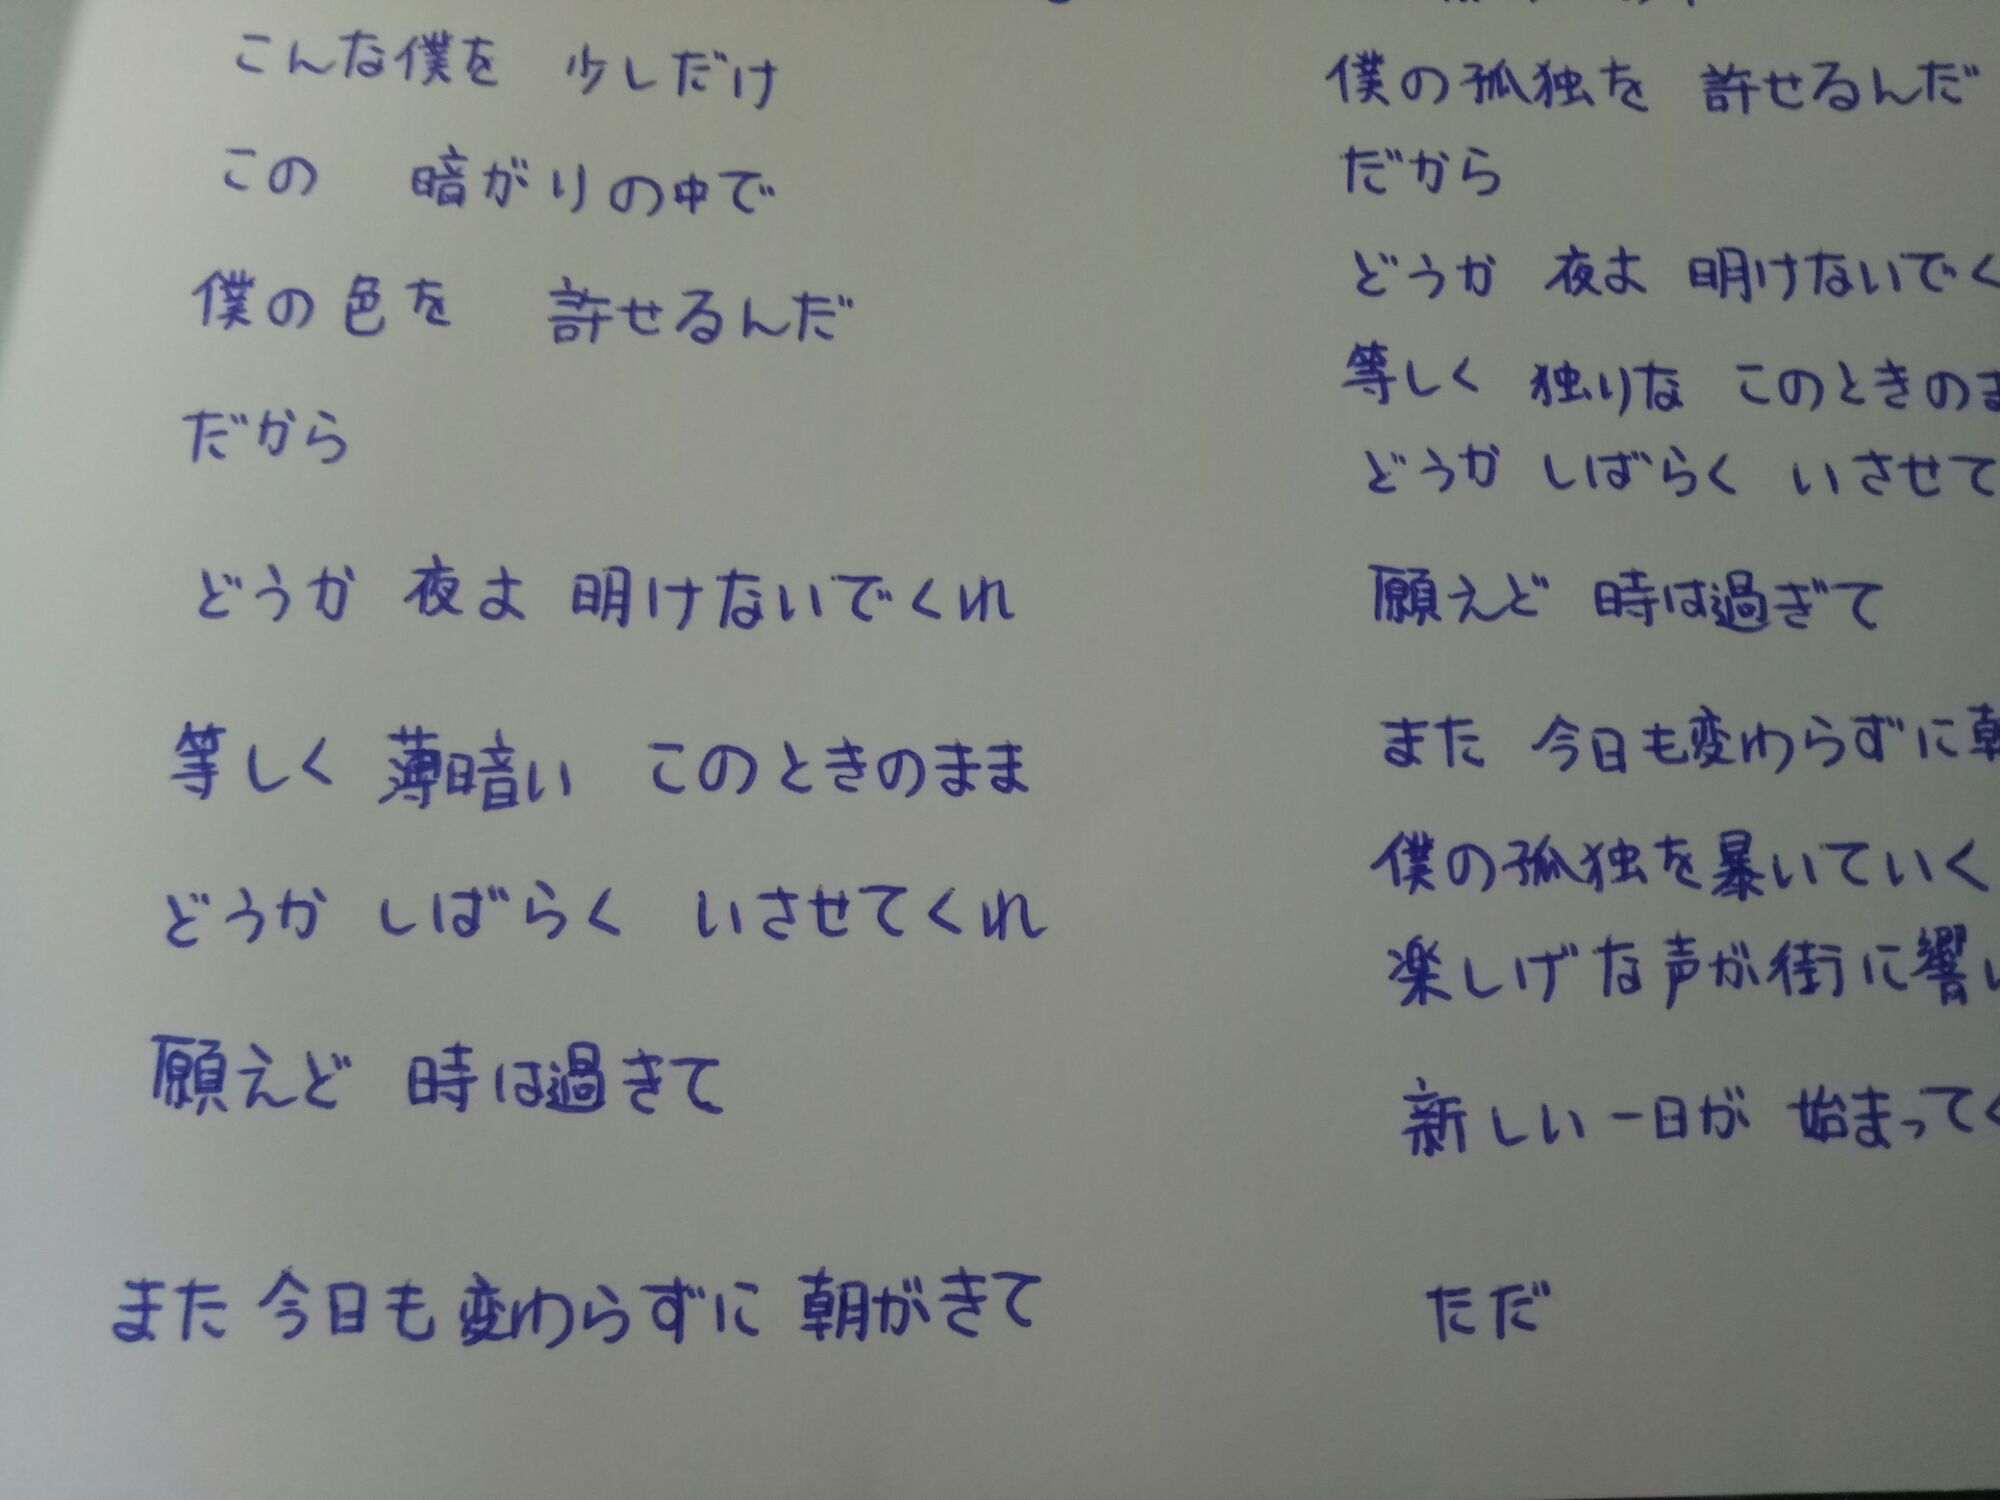 こんな僕を 少しだけ
この 暗がりの中で
僕の色を 許せるんだ
だから
どうか 夜よ 明けないでくれ
等しく 薄暗い このときのまま
どうか しばらく いさせてくれ
願えど 時は過きて
また 今日も 変わらずに 朝がきて
僕の孤独を 許せるんだ
だから
どうか 夜よ 明けないでく
等しく 独りな このときのま
どうか しばらく いさせて
願えど 時は過ぎて
また 今日も変わらずに朝
僕の孤独を暴いていく
楽しげな声が街に響い
新しい一日が 始まってく
ただ